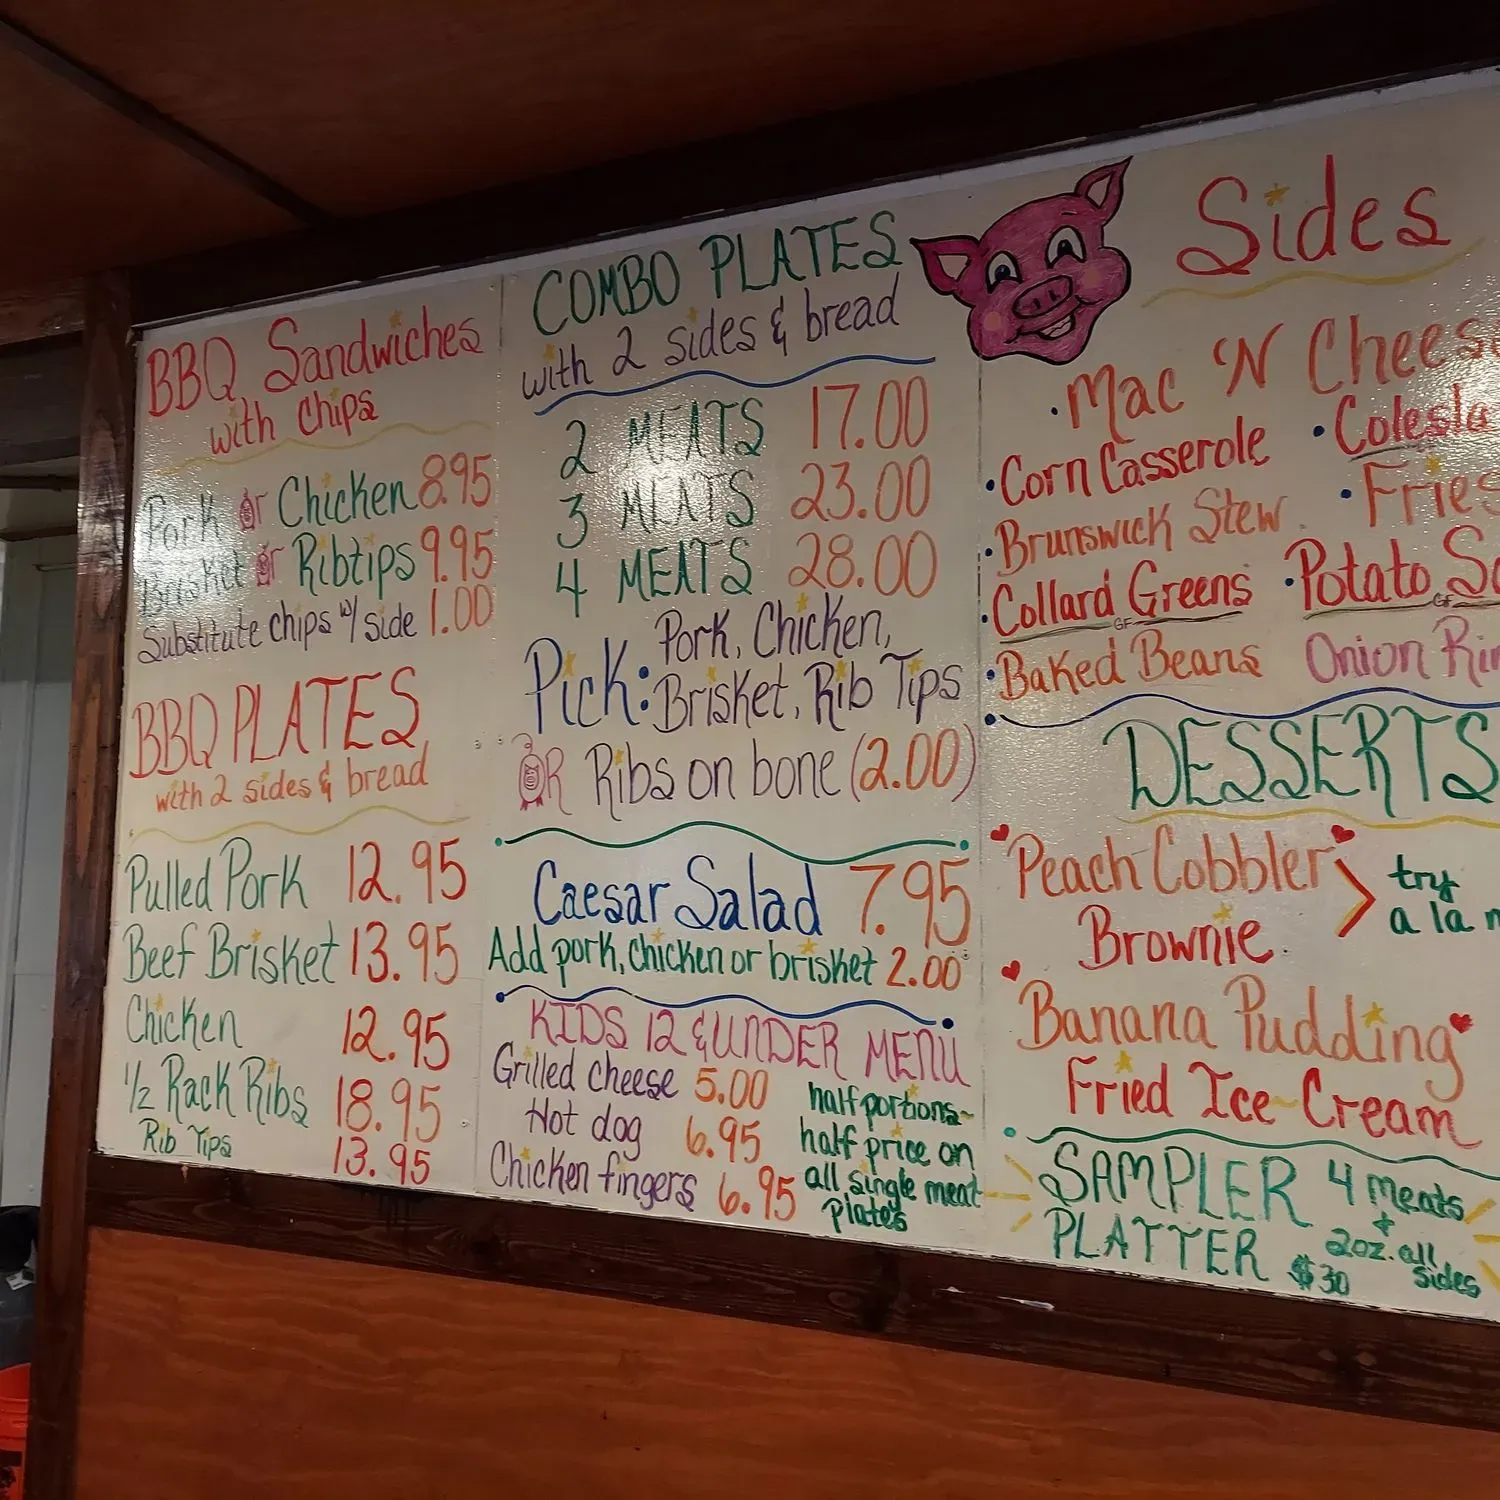 BBQ Sandwiches
with chips
Pork or Chicken 8.95
Brisket or Ribtips 9.95
Substitute chips w/ side 1.00
BBQ PLATES
with 2 sides & bread
Pulled Pork 12.95
Beef Brisket 13.95
Chicken 12.95
1/2 Rack Ribs 18.95
Rib Tips 13.95
COMBO PLATES
with 2 sides & bread
2 MEATS 17.00
3 MEATS 23.00
4 MEATS 28.00
Pick: Pork, Chicken,
Brisket, Rib Tips
OR Ribs on bone (2.00)
Caesar Salad 7.95
Add pork, chicken or brisket 2.00
KIDS 12 & UNDER MENU
Grilled cheese 5.00
Hot dog 6.95
Chicken fingers 6.95
half portions~
half price on
all single meat
plates
Sides
• Mac 'N Cheese
• Corn Casserole
• Colesla
• Brunswick Stew
• Fries
• Collard Greens
GF
• Potato
GF
• Baked Beans
Onion
DESSERTS
Peach Cobbler
Brownie
try
a la
Banana Pudding
Fried Ice-Cream
SAMPLER
PLATTER $30
4 meats
+
2oz. all
sides